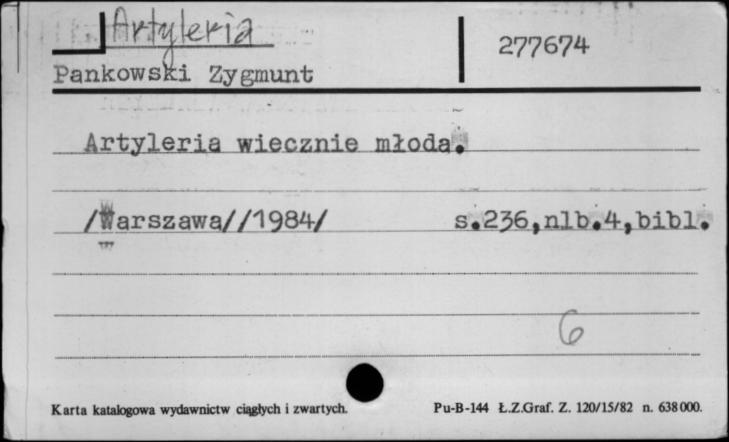 Artyleria
277674
Pankowski Zygmunt
Artyleria wiecznie młoda.
/Warszawa//1984/ s.236,nlb.4,bibl.
6
Karta katalogowa wydawnictw ciągłych i zwartych. Pu-B-144 Ł.Z.Graf. Z. 120/15/82 n. 638000.